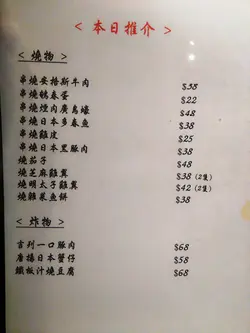 < 本日推介 >
< 燒物 >
串燒安格斯牛肉 $38
串燒鵪春蛋 $22
串燒煙肉廣島蠔 $48
串燒日本多春魚 $38
串燒雞皮 $25
串燒日本黑豚肉 $38
燒茄子 $48
燒芝麻雞翼 $38 (2隻)
燒明太子雞翼 $42 (2隻)
燒雜菜魚餅 $38
< 炸物 >
吉列一口豚肉 $68
唐揚日本蟹仔 $58
鐵板汁燒豆腐 $68